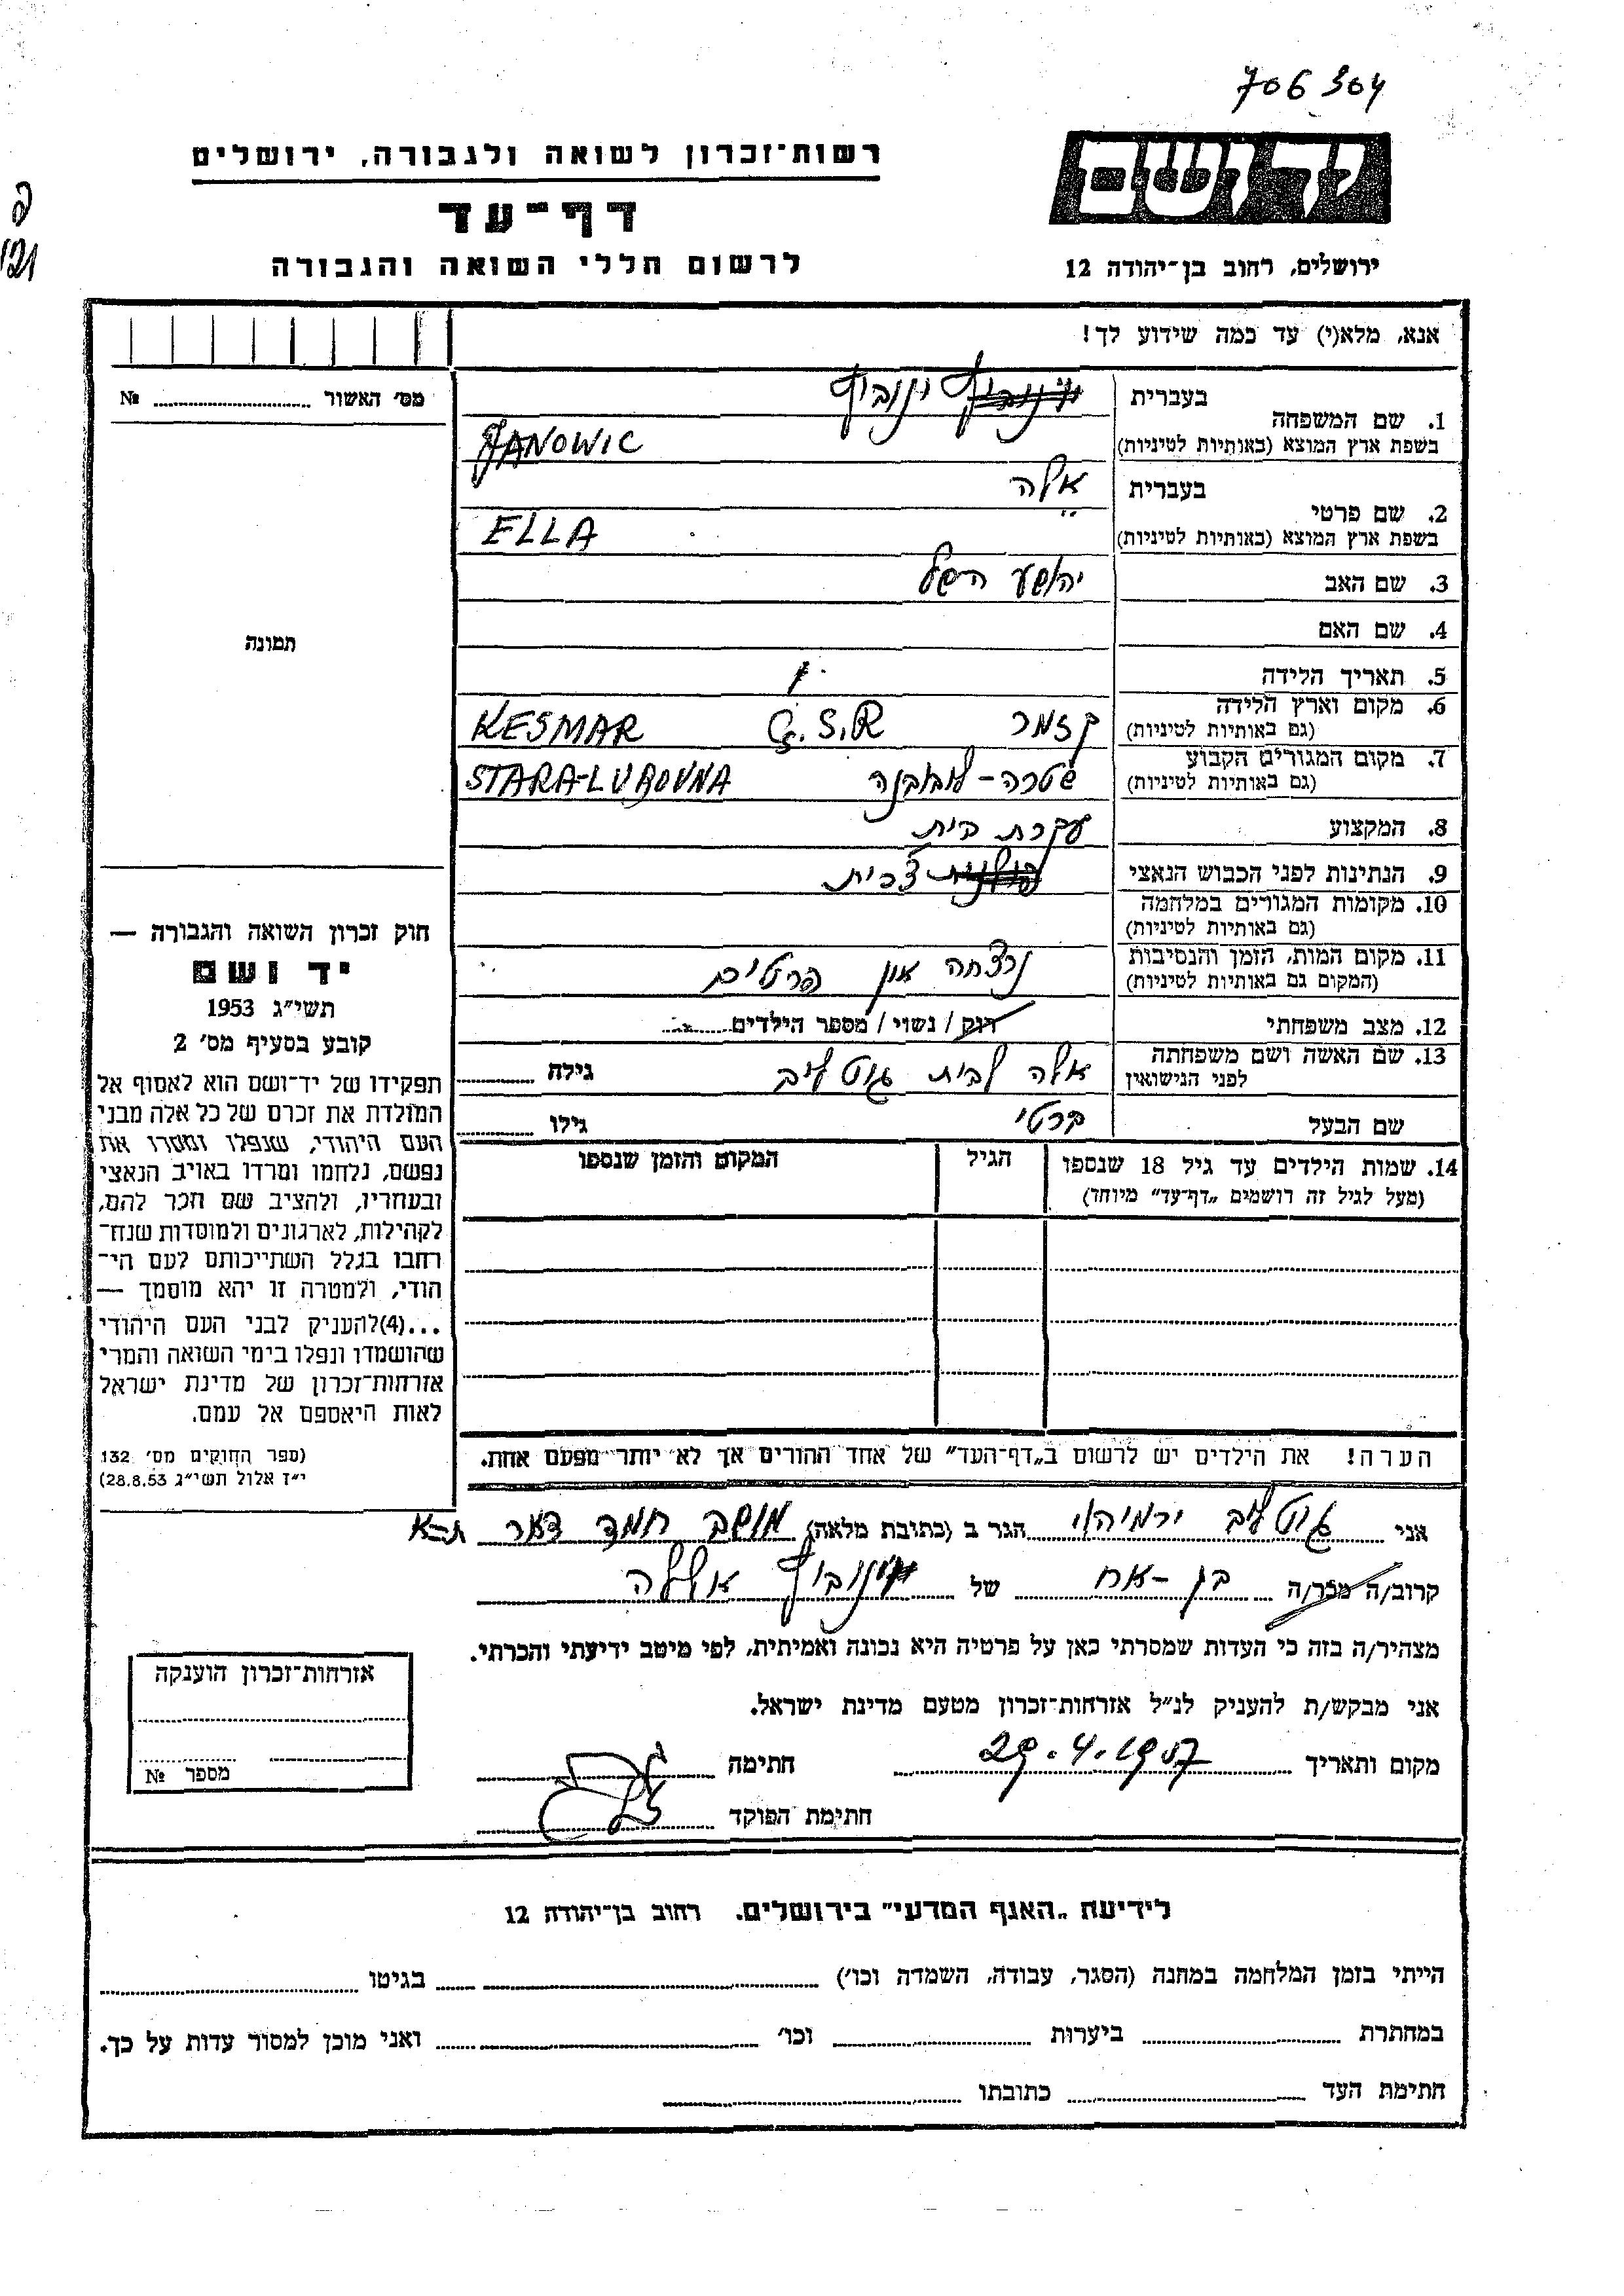 706304
ידושם
רשות־זכרון לשואה ולגבורה, ירושלים
דף־עד
לרשום חללי השואה והגבורה
ירושלים, רחוב בן־יהודה 12
אנא, מלא(י) עד כמה שידוע לך!
מס׳ האשור № 
1. שם המשפחה בעברית ינוביץ
בשפת ארץ המוצא (באותיות לטיניות) JANOWIC
2. שם פרטי בעברית אלה
בשפת ארץ המוצא (באותיות לטיניות) ELLA
3. שם האב יהושע השל
4. שם האם
5. תאריך הלידה
6. מקום וארץ הלידה קזמר Č.S.R KESMAR
(גם באותיות לטיניות)
7. מקום המגורים הקבוע שטרה-לובובנה STARA-LUBOVNA
(גם באותיות לטיניות)
8. המקצוע עקרת בית
9. הנתינות לפני הכבוש הנאצי צ'כית
10. מקומות המגורים במלחמה
(גם באותיות לטיניות)
11. מקום המות, הזמן והנסיבות נרצחה אין פרטים
(המקום גם באותיות לטיניות)
12. מצב משפחתי רוק / נשוי / מספר הילדים
13. שם האשה ושם משפחתה לפני הנישואין אלה לבית גוטליב גילה
שם הבעל ברטי גילו
14. שמות הילדים עד גיל 18 שנספו הגיל המקום והזמן שנספו
(מעל לגיל זה רושמים „דף־עד” מיוחד)
תמונה
חוק זכרון השואה והגבורה —
יד ושם
תשי״ג 1953
קובע בסעיף מס׳ 2
תפקידו של יד־ושם הוא לאסוף אל
המולדת את זכרם של כל אלה מבני
העם היהודי, שנפלו ומסרו את
נפשם, נלחמו ומרדו באויב הנאצי
ובעוזריו, ולהציב שם וזכר להם,
לקהילות, לארגונים ולמוסדות שנח־
רבו בגלל השתייכותם לעם הי־
הודי, ולמטרה זו יהא מוסמך —
...(4)להעניק לבני העם היהודי
שהושמדו ונפלו בימי השואה והמרי
אזרחות־זכרון של מדינת ישראל
לאות היאספם אל עמם.
(ספר החוקים מס׳ 132
י״ז אלול תשי״ג 28.8.53)
הערה! את הילדים יש לרשום ב„דף־העד” של אחד ההורים אך לא יותר מפעם אחת.
אני גוטליב ירמיהו הגר ב (כתובת מלאה) מושב חמד דאר ת-א
קרוב/ה מכר/ה בן-אח של ינוביץ אללה
מצהיר/ה בזה כי העדות שמסרתי כאן על פרטיה היא נכונה ואמיתית, לפי מיטב ידיעתי והכרתי.
אני מבקש/ת להעניק לנ״ל אזרחות־זכרון מטעם מדינת ישראל.
מקום ותאריך 29.4.1957 חתימה
חתימת הפוקד
אזרחות־זכרון הוענקה
מספר №
לידיעת „האגף המדעי” בירושלים. רחוב בן־יהודה 12
הייתי בזמן המלחמה במחנה (הסגר, עבודה, השמדה וכו׳) בגיטו
במחתרת ביערות וכו׳ ואני מוכן למסור עדות על כך.
חתימת העד כתובתו